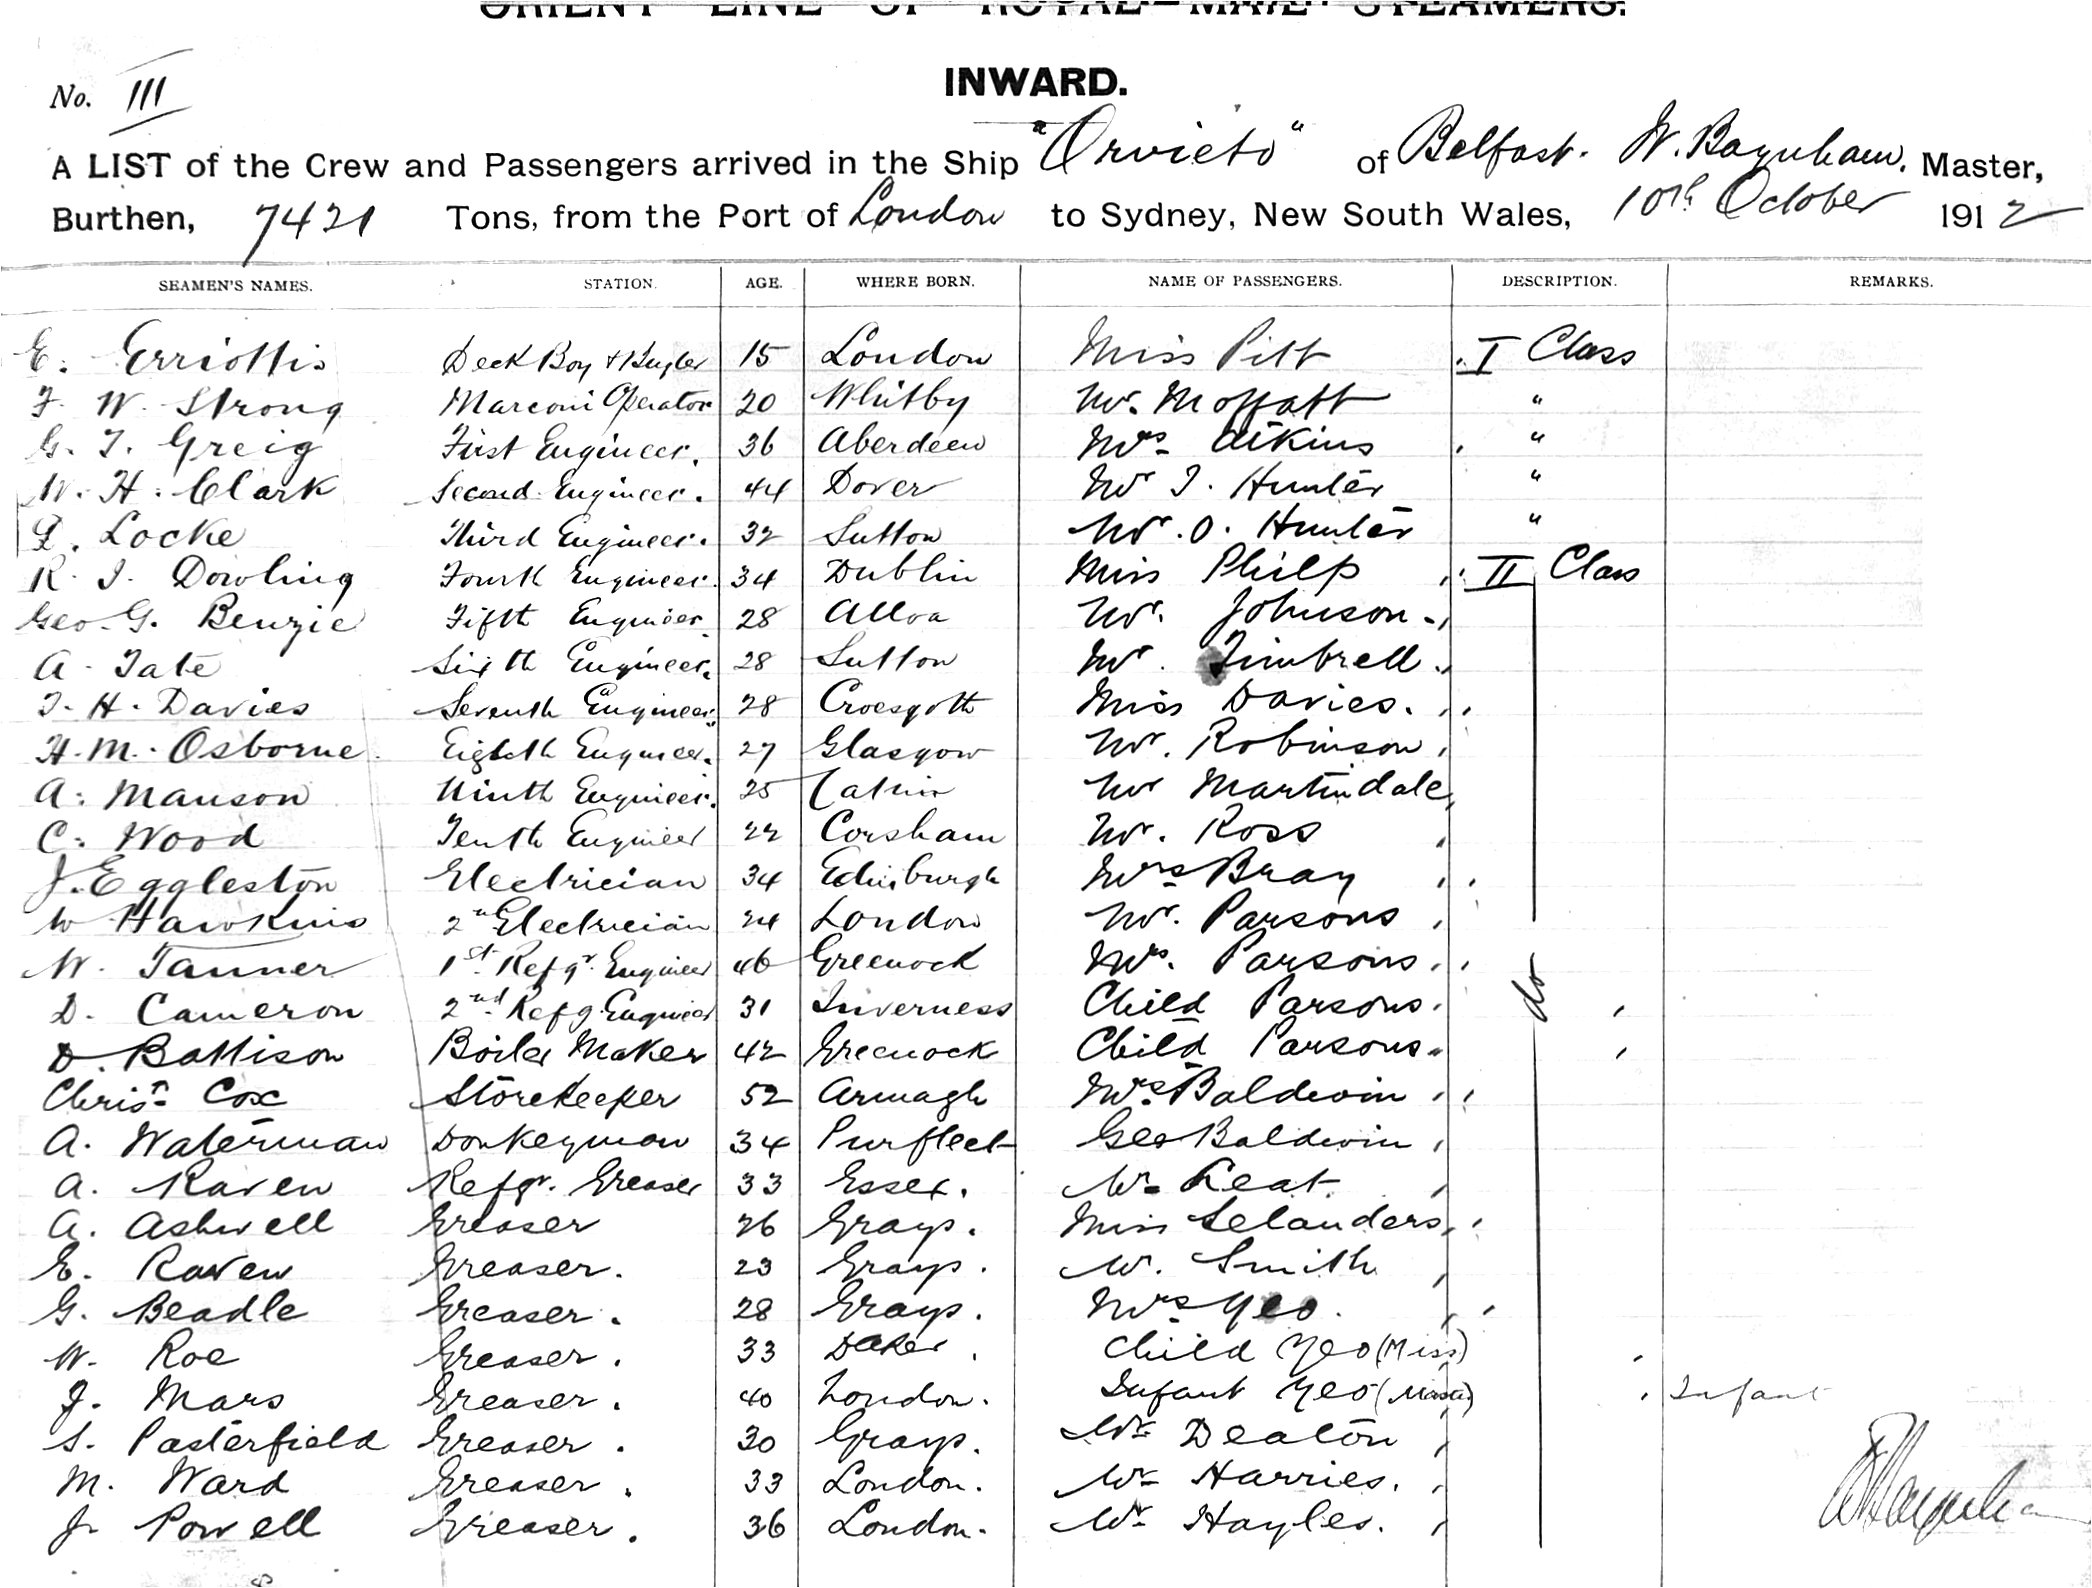 ORIENT LINE OF ROYAL MAIL STEAMERS.
INWARD.
No. III
A LIST of the Crew and Passengers arrived in the Ship "Orvieto" of Belfast. W. Baynham, Master,
Burthen, 7421 Tons, from the Port of London to Sydney, New South Wales, 10th October 1912
SEAMEN'S NAMES. STATION. AGE. WHERE BORN. NAME OF PASSENGERS. DESCRIPTION. REMARKS.
E. Erriottis Deck Boy & Bugler 15 London Miss Pitt I Class
F. W. Strong Marconi Operator 20 Whitby Mr. Moffatt "
G. T. Greig First Engineer. 36 Aberdeen Mrs Atkins "
W. H. Clark Second Engineer. 44 Dover Mr J. Hunter "
L. Locke Third Engineer. 32 Sutton Mr. O. Hunter "
R. J. Dowling Fourth Engineer. 34 Dublin Miss Philp II Class
Geo. G. Benzie Fifth Engineer. 28 Alloa Mr. Johnson
A. Tate Sixth Engineer. 28 Sutton Mr. Timbrell
J. H. Davies Seventh Engineer. 28 Croesgoth Miss Davies.
H. M. Osborne Eighth Engineer. 27 Glasgow Mr. Robinson
A. Manson Ninth Engineer. 25 Catrin Mr Martindale
C. Wood Tenth Engineer 22 Corsham Mr. Ross
J. Eggleston Electrician 34 Edinburgh Mrs Bray
W Hawkins 2n Electrician 24 London Mr. Parsons
W. Tanner 1st Refgr. Engineer 46 Greenock Mrs. Parsons
D. Cameron 2nd Refg. Engineer 31 Inverness Child Parsons do
D. Battison Boiler Maker 42 Greenock Child Parsons
Christ. Cox Storekeeper 52 Armagh Mrs. Baldwin
A. Waterman Donkeyman 34 Purfleet Geo Baldwin
A. Raven Refgr. Greaser 33 Essex. Mr. Leat
A. Ashwell Greaser 26 Grays. Miss Selanders
E. Raven Greaser. 23 Grays. Mr. Smith
G. Beadle Greaser. 28 Grays. Mrs Yeo.
W. Roe Greaser. 33 Child Yeo (Miss)
J. Mars Greaser. 40 London. Infant Yeo (Master) Infant
S. Pasterfield Greaser. 30 Grays. Mr. Deaton
M. Ward Greaser. 33 London. Mr. Harries.
J. Powell Greaser. 36 London. Mr. Hayles.
W Baynham